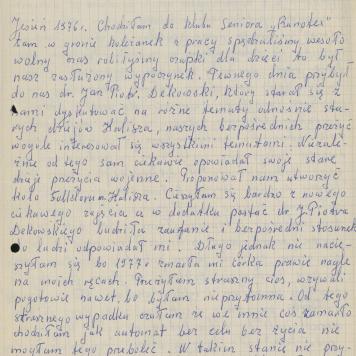 Jesień 1976 r. Chodziłam do klubu Seniora „Bunotex"
tam w gronie koleżanek z pracy spędzaliśmy wesoło
wolny czas robiłyśmy czapki dla dzieci to był
nasz zasłużony wypoczynek. Pewnego dnia przybył
do nas dr. Jan Piotr Dekowski, który starał się z
nami dyskutować na różne tematy odnośnie sta-
rych dziejów Kalisza, naszych bezpośrednich przeżyć
wogóle interesował się wszystkimi tematami. Niezale-
żnie od tego sam ciekawie opowiadał swoje stare
dzieje przeżycia wojenne. Proponował nam utworzyć
koło Folkloru m. Kalisza. Cieszyłam się bardzo z nowego
ciekawego zajęcia a w dodatku postać dr. J. Piotra
Dekowskiego budziła zaufanie i bezpośredni stosunek
do ludzi odpowiadał mi. Długo jednak nie nacie-
szyłam się bo 1977 r zmarła mi córka prawie nagle
na moich rękach. Przeżyłam straszny cios, wzywali
pogotowie nawet, bo byłam nieprzytomna. Od tego
strasznego wypadku czułam że we mnie coś zamarło
chodziłam jak automat bez celu bez życia nie
mogłam tego przeboleć. W takim stanie nie przy-